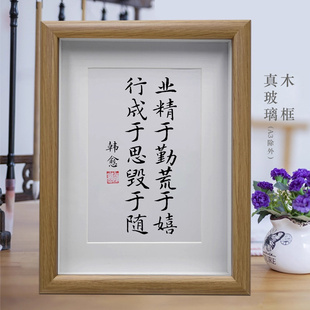 业精于勤荒于嬉
行成于思毁于随
韩愈
木框
真玻璃
(A3除外)